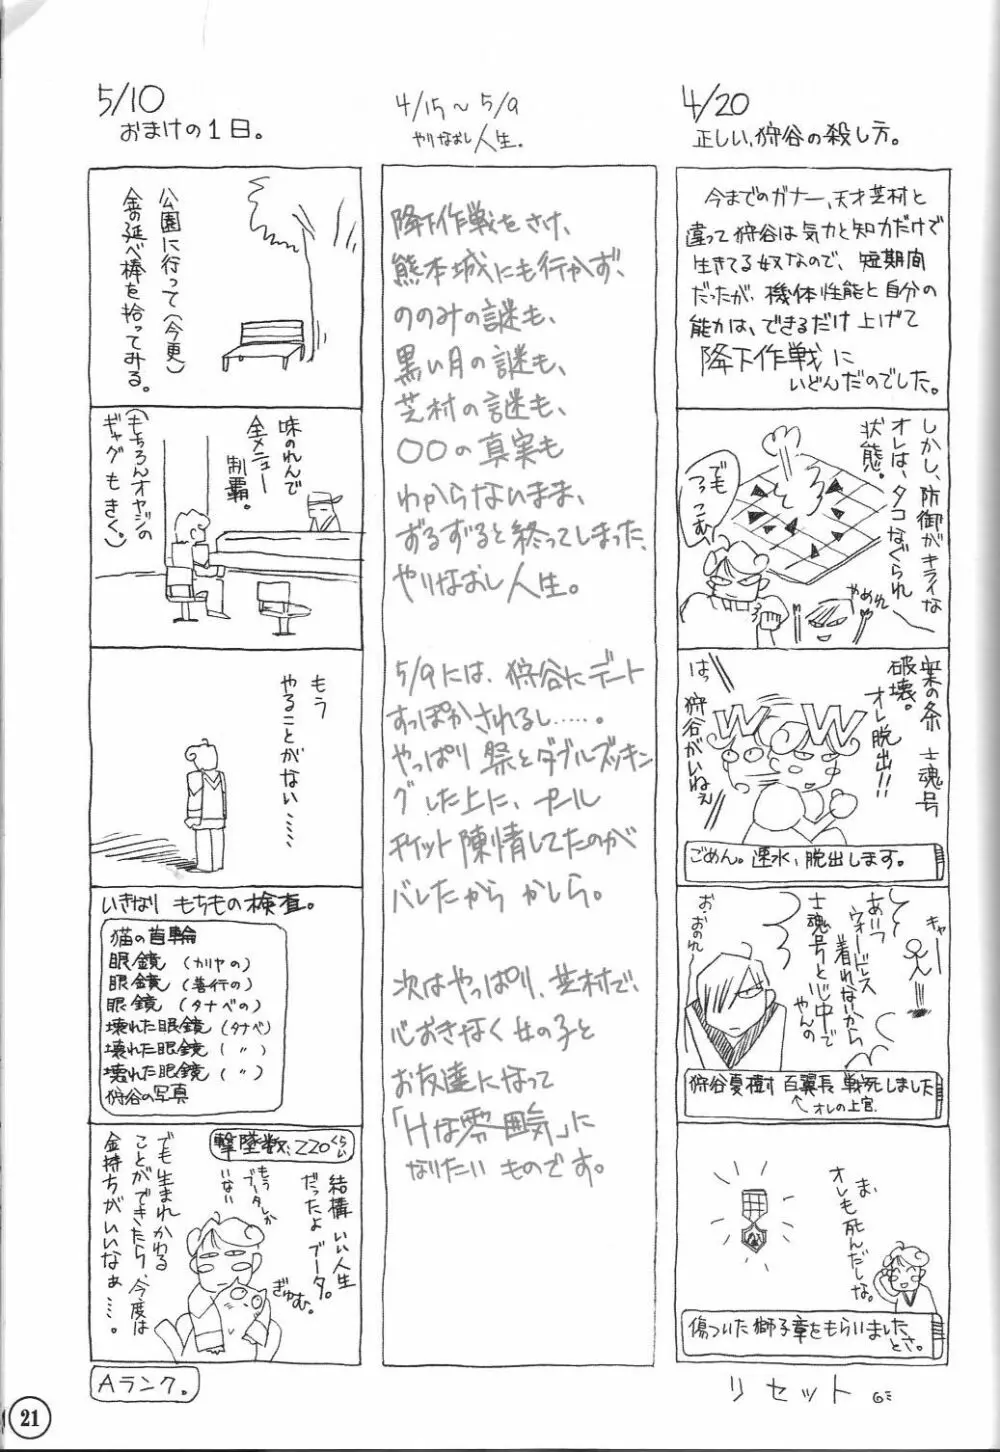 4/20
正しい、狩谷の殺し方。
今までのガナー、天才芝村と
違って狩谷は気力と知力だけで
生きてる奴なので、短期間
だったが、機体性能と自分の
能力は、できるだけ上げて
降下作戦に
いどんだのでした。
しかし、防御がキライな
オレは、タコなぐられ
状態。
でも
つっこむ
やめれ
士魂号
破壊。
オレ脱出!!
はっ 狩谷がいねぇ
ごめん。速水、脱出します。
キャー
あいつ
ウォードレス
着れないから
士魂号といっしょ中で
やんの
お・おのれ
狩谷夏樹 百翼長 戦死しました
オレの上官
ま、
オレも死んだしな。
傷ついた獅子章をもらいました
とさ。
リセット
4/15～5/9
やりなおし人生。
降下作戦をさけ、
熊本城にも行かず、
ののみの謎も、
黒い月の謎も、
芝村の謎も、
〇〇の真実も
わからないまま、
ずるずると終ってしまった、
やりなおし人生。
5/9には、狩谷にデート
すっぽかされるし……。
やっぱり 祭とダブルブッキン
グした上に、プール
チケット陳情してたのが
バレたから かしら。
次はやっぱり、芝村で、
心おきなく女の子と
お友達になって
「Hな雰囲気」に
なりたい ものです。
5/10
おまけの1日。
公園に行って(今更)
金の延べ棒を拾ってみる。
味のれんで
全メニュー
制覇。
(もちろんオヤジの
ギャグもきく。)
もう
やることがない……
いきなり もちもの検査。
猫の首輪
眼鏡 (カリヤの)
眼鏡 (善行の)
眼鏡 (タナベの)
壊れた眼鏡 (タナベ)
壊れた眼鏡 (〃)
壊れた眼鏡 (〃)
狩谷の写真
撃墜数:220くらい
結構 いい人生
だったよ ブータ。
もう
ブータしか
いない
ぎゅむ。
でも生まれかわる
ことができたら、今度は
金持ちがいいなぁ…。
Aランク。
21